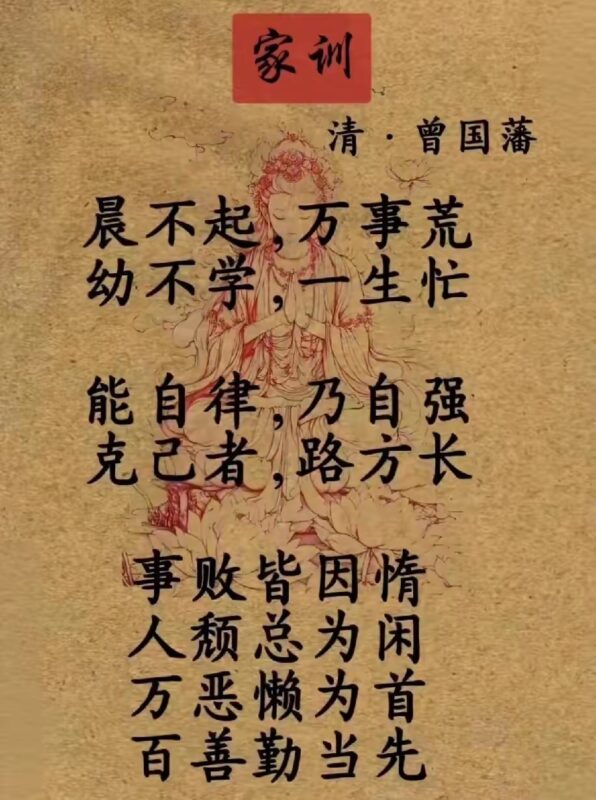 家训
清·曾国藩
晨不起,万事荒
幼不学,一生忙
能自律,乃自强
克己者,路方长
事败皆因惰
人颓总为闲
万恶懒为首
百善勤当先